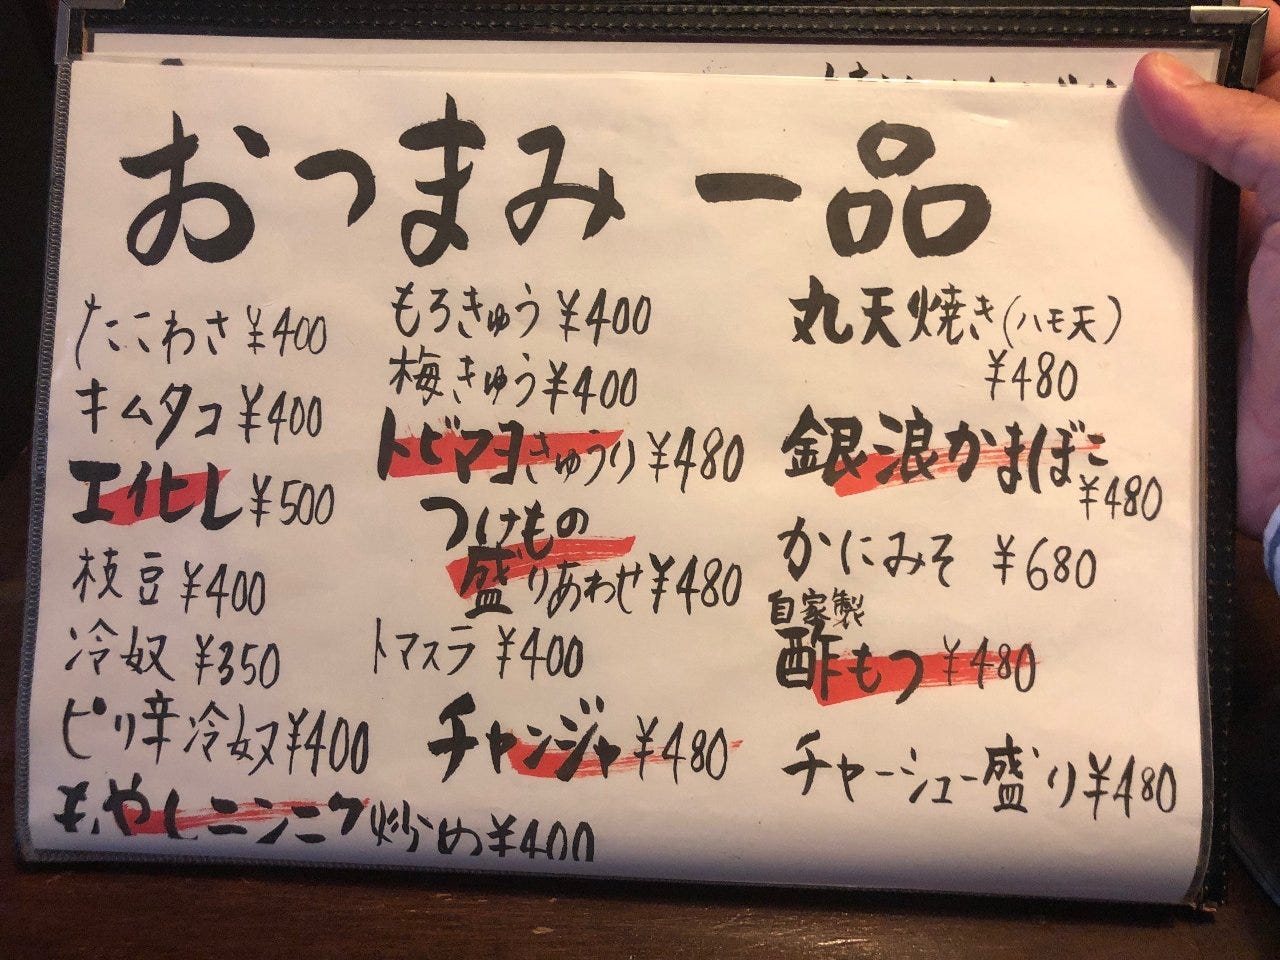 おつまみ 一品
たこわさ ¥400
キムタコ ¥400
エイヒレ ¥500
枝豆 ¥400
冷奴 ¥350
ピリ辛冷奴 ¥400
もやしニンニク炒め ¥400
もろきゅう ¥400
梅きゅう ¥400
トビマヨきゅうり ¥480
つけもの
盛りあわせ ¥480
トマスラ ¥400
チャンジャ ¥480
丸天焼き(ハモ天)
¥480
銀浪かまぼこ
¥480
かにみそ ¥680
自家製
酢もつ ¥480
チャーシュー盛り ¥480